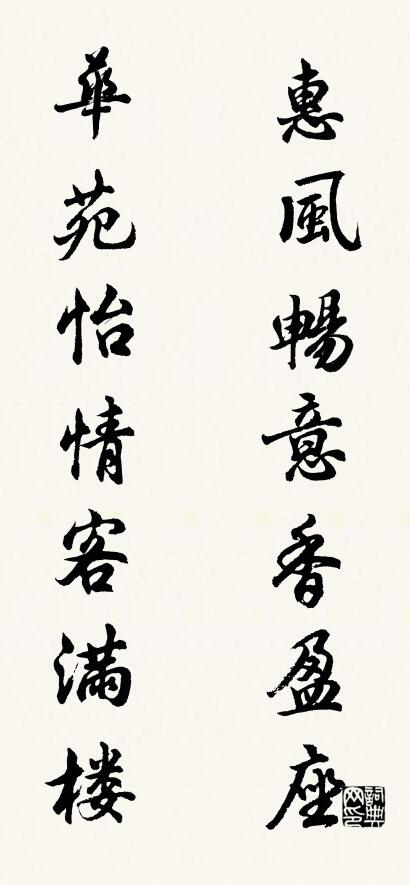 惠風暢意香盈座
華苑怡情客滿楼